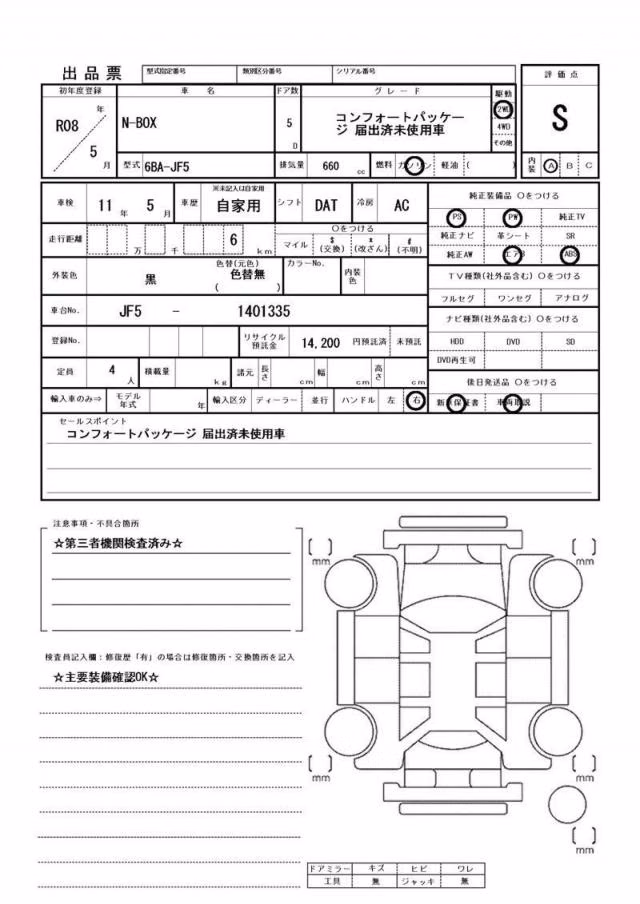 出品票 型式指定番号 類別区分番号 シリアル番号
評価点
初年度登録 車名 ドア数 グレード 駆動
R08 年 5 月
N-BOX
5 D
コンフォートパッケー
ジ 届出済未使用車
2WD
4WD
その他
S
型式 6BA-JF5 排気量 660 cc 燃料 ガソリン 軽油 ( )
内装 A B C
車検 11 年 5 月 車歴 ※未記入は自家用 自家用 シフト DAT 冷房 AC
純正装備品 ○をつける
PS PW 純正TV
純正ナビ 革シート SR
純正AW エアB ABS
走行距離 万 千 6 km
○をつける
マイル $(交換) *(改ざん) #(不明)
外装色 黒 色替(元色) 色替無 ( )
カラーNo. 内装色
TV種類(社外品含む) ○をつける
フルセグ ワンセグ アナログ
車台No. JF5 - 1401335
ナビ種類(社外品含む) ○をつける
HDD DVD SD
DVD再生可
登録No. リサイクル預託金 14,200 円預託済 未預託
定員 4 人 積載量 kg 諸元 長さ cm 幅 cm 高さ cm
後日発送品 ○をつける
新車保証書 車両取説
輸入車のみ⇒ モデル年式 年 輸入区分 ディーラー 並行 ハンドル 左 右
セールスポイント
コンフォートパッケージ 届出済未使用車
注意事項・不具合箇所
☆第三者機関検査済み☆
検査員記入欄：修復歴「有」の場合は修復箇所・交換箇所を記入
☆主要装備確認OK☆
[ ] mm
[ ] mm
[ ] mm
[ ] mm
[ ] mm
ドアミラー キズ ヒビ ワレ
工具 無 ジャッキ 無